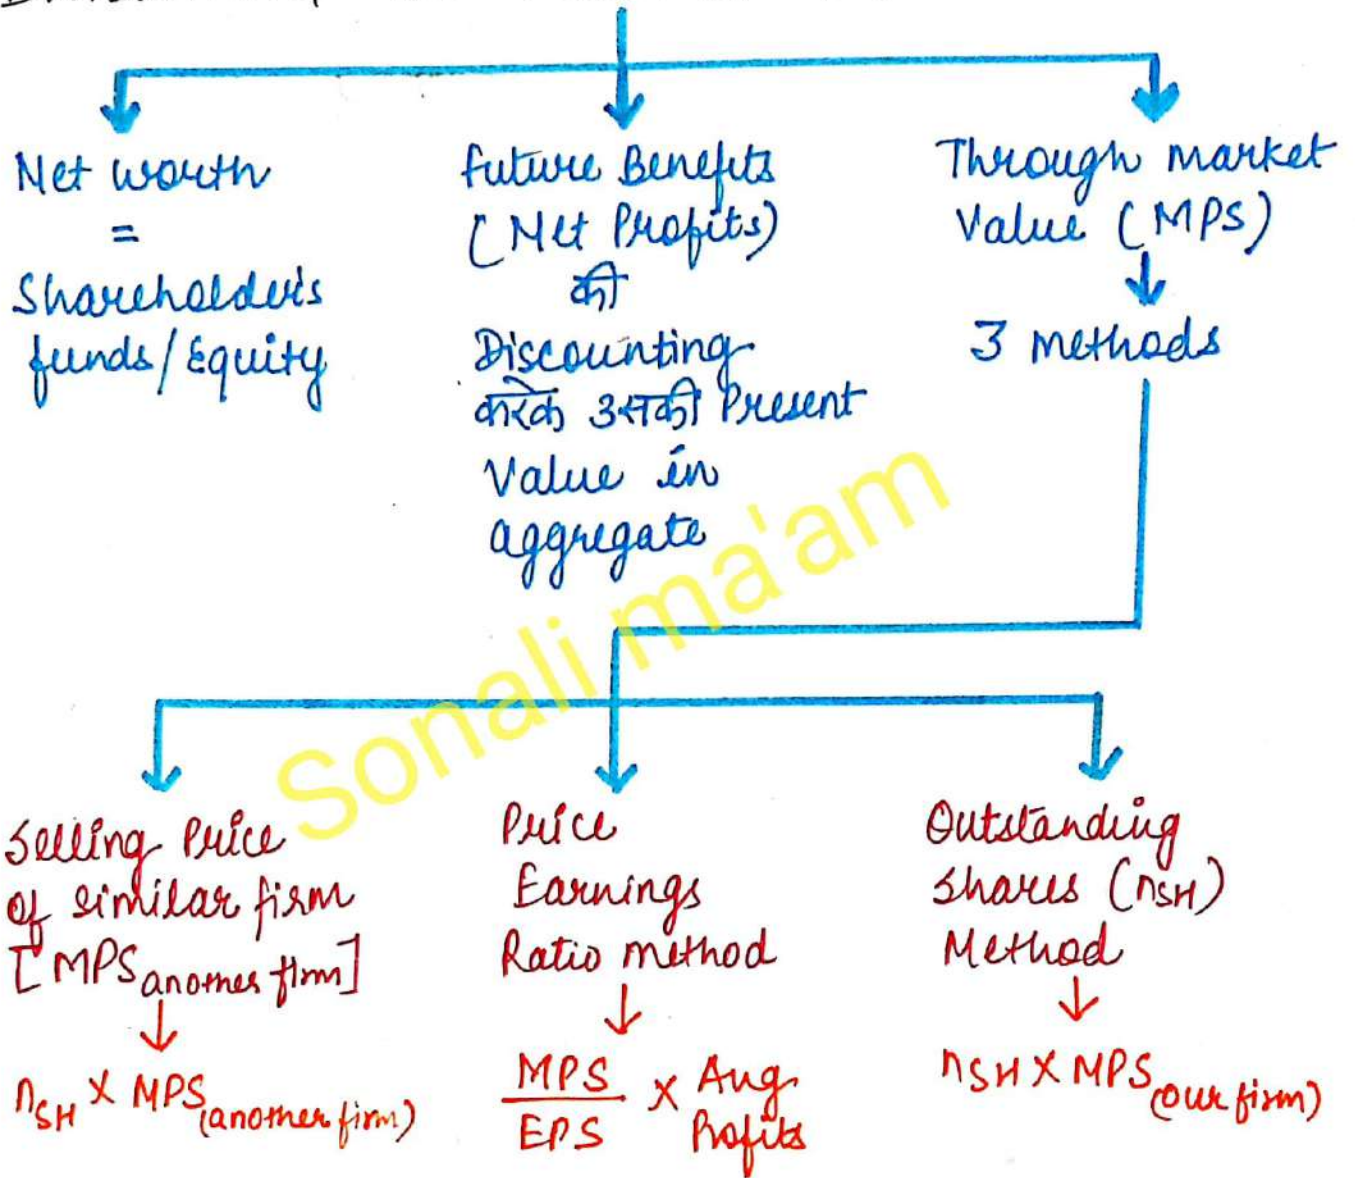 Net worth
=
Shareholder's
funds/Equity
future Benefits
(Net Profits)
की
Discounting
करके उसकी Present
Value in
aggregate
Through market
Value (MPS)
3 methods
Sonali ma'am
Selling Price
of similar firm
[MPS another firm]
nSH X MPS (another firm)
Price
Earnings
Ratio method
MPS
EPS
X Avg.
Profits
Outstanding
shares (nSH)
Method
nSH X MPS (our firm)